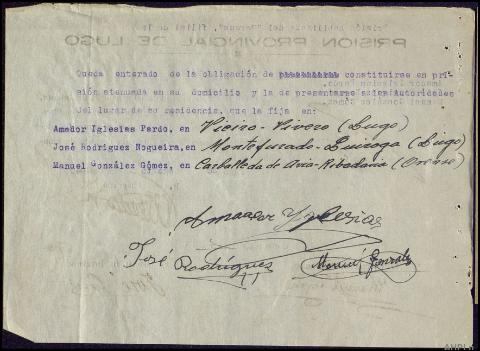 PRISION PROVINCIAL DE LUGO
Queda enterado de la obligación de constituirse en pri-
sión atenuada en su domicilio y la de presentarse a las Autoridades
del lugar de su residencia, que la fija en:
Amador Iglesias Pardo, en Vieiro-Vivero (Lugo)
José Rodríguez Nogueira, en Montefurado-Quiroga (Lugo)
Manuel González Gómez, en Carballeda de Avia-Ribadavia (Orense)
Amador Yglesias
José Rodríguez
Manuel Gonzalez